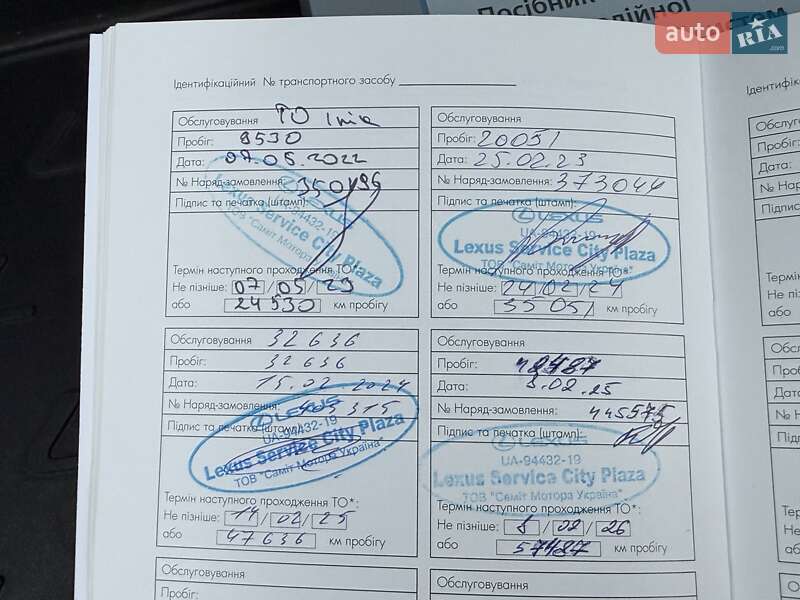 Посібник
auto RIA
.com
Ідентифікаційний № транспортного засобу
Обслуговування ТО
Пробіг: 9530
Дата: 07.05.2022
№ Наряд-замовлення:
Підпис та печатка (штамп):
LEXUS
UA-94432-19
Lexus Service City Plaza
ТОВ "Саміт Мотори Україна"
Термін наступного проходження ТО*:
Не пізніше: 07/05/23
або 24530 км пробігу
Обслуговування
Пробіг: 20051
Дата: 25.02.23
№ Наряд-замовлення: 373044
Підпис та печатка (штамп):
LEXUS
UA-94432-19
Lexus Service City Plaza
ТОВ "Саміт Мотори Україна"
Термін наступного проходження ТО*:
Не пізніше: 24/02/24
або 35051 км пробігу
Обслуговування 32636
Пробіг: 32636
Дата: 15.02.2024
№ Наряд-замовлення:
Підпис та печатка (штамп):
LEXUS
UA-94432-19
Lexus Service City Plaza
ТОВ "Саміт Мотори Україна"
Термін наступного проходження ТО*:
Не пізніше: 14/02/25
або 47636 км пробігу
Обслуговування
Пробіг: 42487
Дата: 8.02.25
№ Наряд-замовлення:
Підпис та печатка (штамп):
LEXUS
UA-94432-19
Lexus Service City Plaza
ТОВ "Саміт Мотори Україна"
Термін наступного проходження ТО*:
Не пізніше: 8/02/26
або 57487 км пробігу
Обслуговування
Пробіг:
Обслуговування